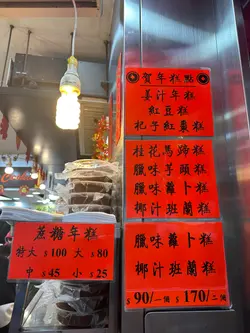 賀年糕點
薑汁年糕
紅豆糕
杞子紅棗糕
桂花馬蹄糕
臘味芋頭糕
臘味蘿卜糕
椰汁班蘭糕
臘味蘿卜糕
椰汁班蘭糕
$90/一個 $170/二個
蔗糖年糕
特大$100 大$80
中$45 小$25